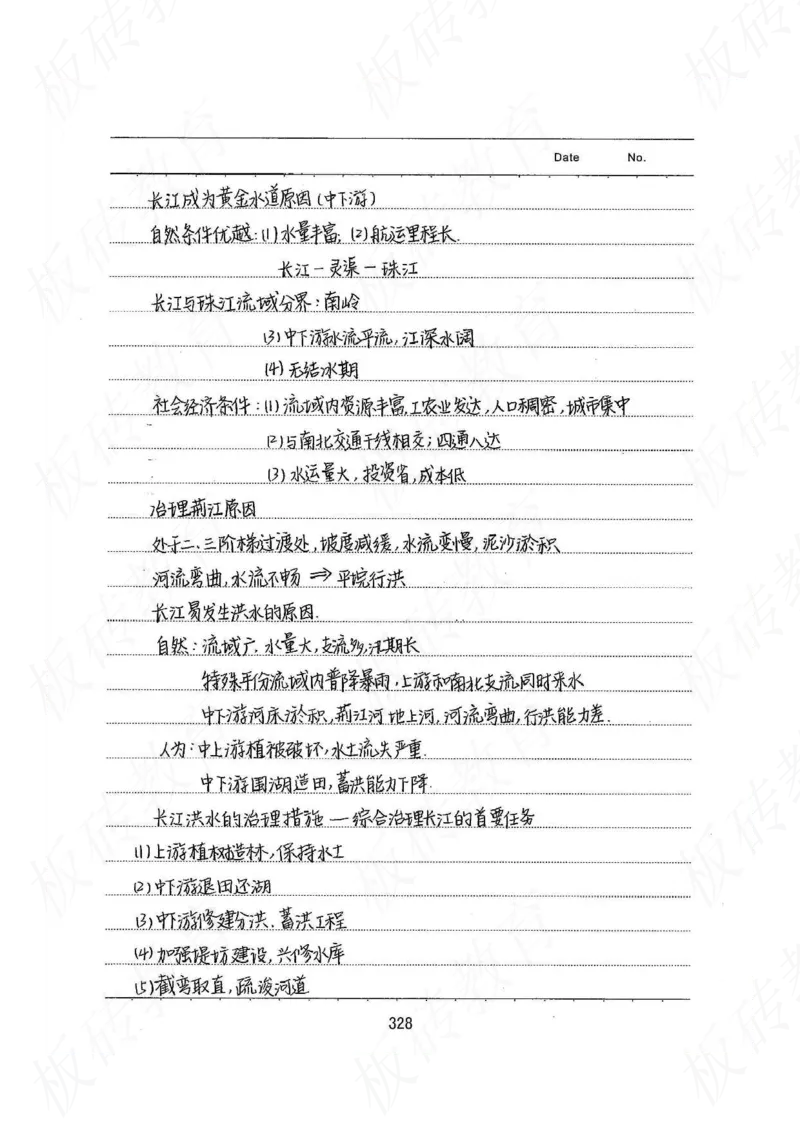 Date No.
长江成为黄金水道原因(中下游)
自然条件优越:(1)水量丰富;(2)航运里程长.
长江—灵渠—珠江
长江与珠江流域分界:南岭
(3)中下游水流平流,江深水阔
(4)无结冰期
社会经济条件:(1)流域内资源丰富,工农业发达,人口稠密,城市集中
(2)与南北交通干线相交;四通八达
(3)水运量大,投资省,成本低
治理荆江原因
处于二、三阶梯过渡处,坡度减缓,水流变慢,泥沙淤积
河流弯曲,水流不畅⇒平垸行洪
长江易发生洪水的原因.
自然:流域广.水量大,支流多,汛期长
特殊年份流域内普降暴雨,上游和南北支流同时来水
中下游河床淤积,荆江河地上河,河流弯曲,行洪能力差.
人为:中上游植被破坏,水土流失严重.
中下游围湖造田,蓄洪能力下降.
长江洪水的治理措施—综合治理长江的首要任务
(1)上游植树造林,保持水土
(2)中下游退田还湖
(3)中下游修建分洪、蓄洪工程
(4)加强堤坊建设,兴修水库
(5)截弯取直,疏浚河道
328
板砖教育